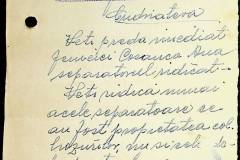 Cudriateva
Veți preda imediat
femeiei Cosanca Ana
separatorul ridicat.-
Veți ridica numai
acele separatoare ce
au fost proprietatea col
hozurilor, nu și cele